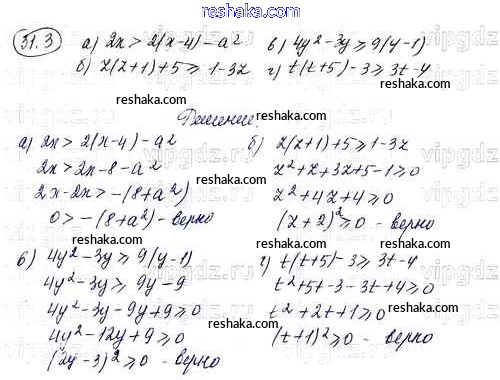 reshaka.com
31.3
а) 2x > 2(x-4) - a²
в) 4y² - 3y ≥ 9(y-1)
б) z(z+1)+5 ≥ 1-3z
г) t(t+5)-3 ≥ 3t-4
reshaka.com reshaka.com
Решение:
а) 2x > 2(x-4) - a²
2x > 2x - 8 - a²
2x - 2x > -(8+a²)
0 > -(8+a²) - верно
б) z(z+1)+5 ≥ 1-3z
z²+z+3z+5-1 ≥ 0
z²+4z+4 ≥ 0
(z+2)² ≥ 0 - верно
reshaka.com reshaka.com
в) 4y² - 3y ≥ 9(y-1)
4y² - 3y ≥ 9y - 9
4y² - 3y - 9y + 9 ≥ 0
4y² - 12y + 9 ≥ 0
(2y-3)² ≥ 0 - верно
г) t(t+5)-3 ≥ 3t-4
t²+5t-3-3t+4 ≥ 0
t²+2t+1 ≥ 0
(t+1)² ≥ 0 - верно
reshaka.com reshaka.com
vipgdz.ru